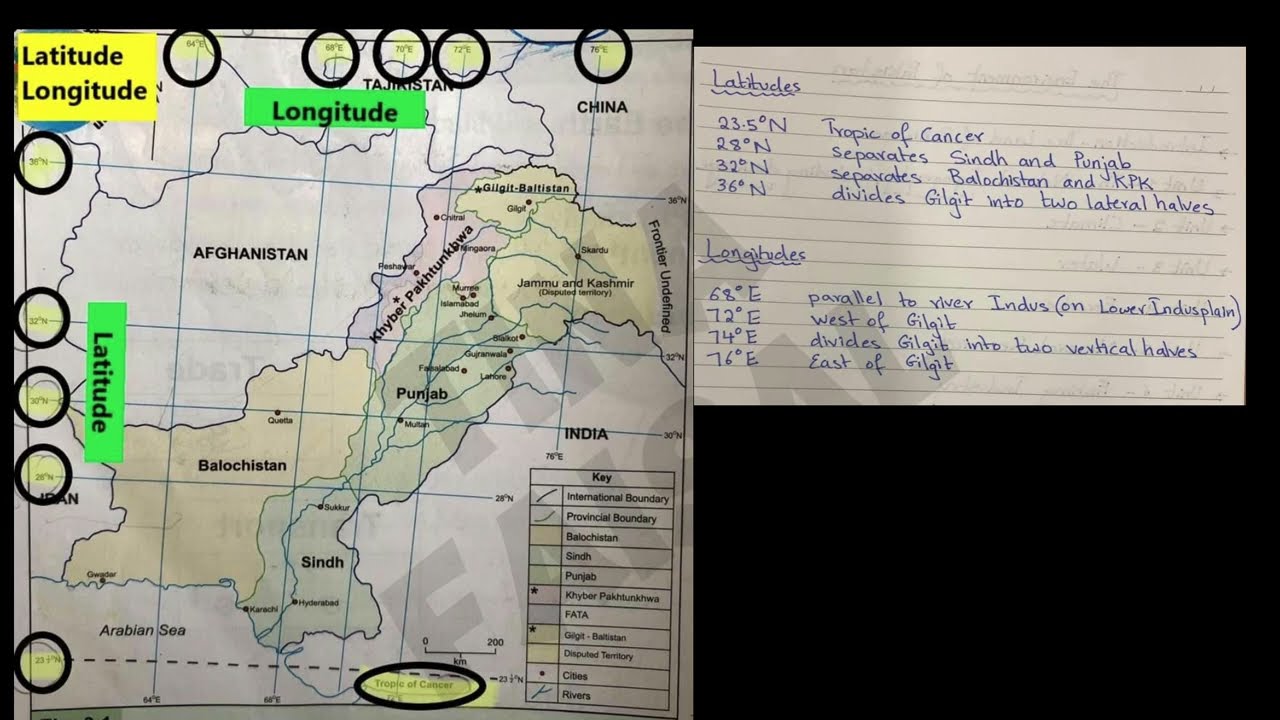 Latitude
Longitude
64°E
68°E
70°E
72°E
76°E
TAJIKISTAN
Longitude
CHINA
38°N
Gilgit-Baltistan
36°N
Gilgit
Chitral
AFGHANISTAN
Mingaora
Skardu
Frontier Undefined
Peshawar
Khyber Pakhtunkhwa
Murree
Jammu and Kashmir
(Disputed territory)
Islamabad
Jhelum
32°N
Latitude
Sialkot
Gujranwala
32°N
Faisalabad
Lahore
Punjab
30°N
Quetta
Multan
INDIA
30°N
76°E
Balochistan
28°N
IRAN
28°N
Sukkur
Sindh
Gwadar
Karachi
Hyderabad
Arabian Sea
0 200
km
23 ½°N
23 ½°N
Tropic of Cancer
64°E
68°E
72°E
Key
International Boundary
Provincial Boundary
Balochistan
Sindh
Punjab
Khyber Pakhtunkhwa
FATA
Gilgit - Baltistan
Disputed Territory
Cities
Rivers
Latitudes
23.5°N Tropic of Cancer
28°N separates Sindh and Punjab
32°N separates Balochistan and KPK
36°N divides Gilgit into two lateral halves
Longitudes
68°E parallel to river Indus (on Lower Indusplain)
72°E west of Gilgit
74°E divides Gilgit into two vertical halves
76°E East of Gilgit